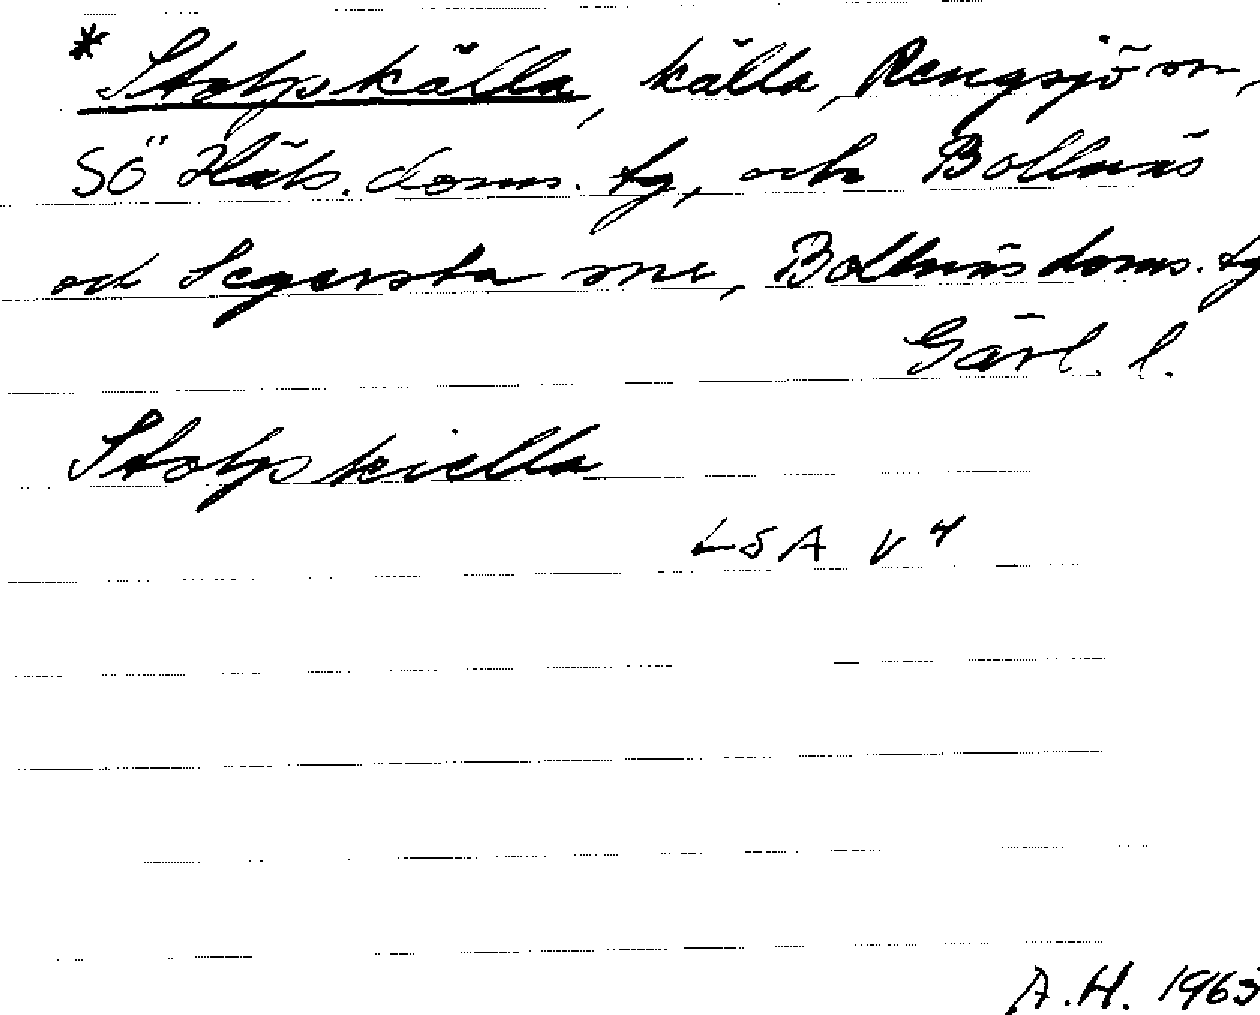 * Stolpskälla, källa, Rengsjö sn,
SÖ Häls. doms. tg, och Bollnäs
och Segersta snr, Bollnäs doms. tg
Gävl. l.
Stolpskiella
LSA V 4
A.H. 1963